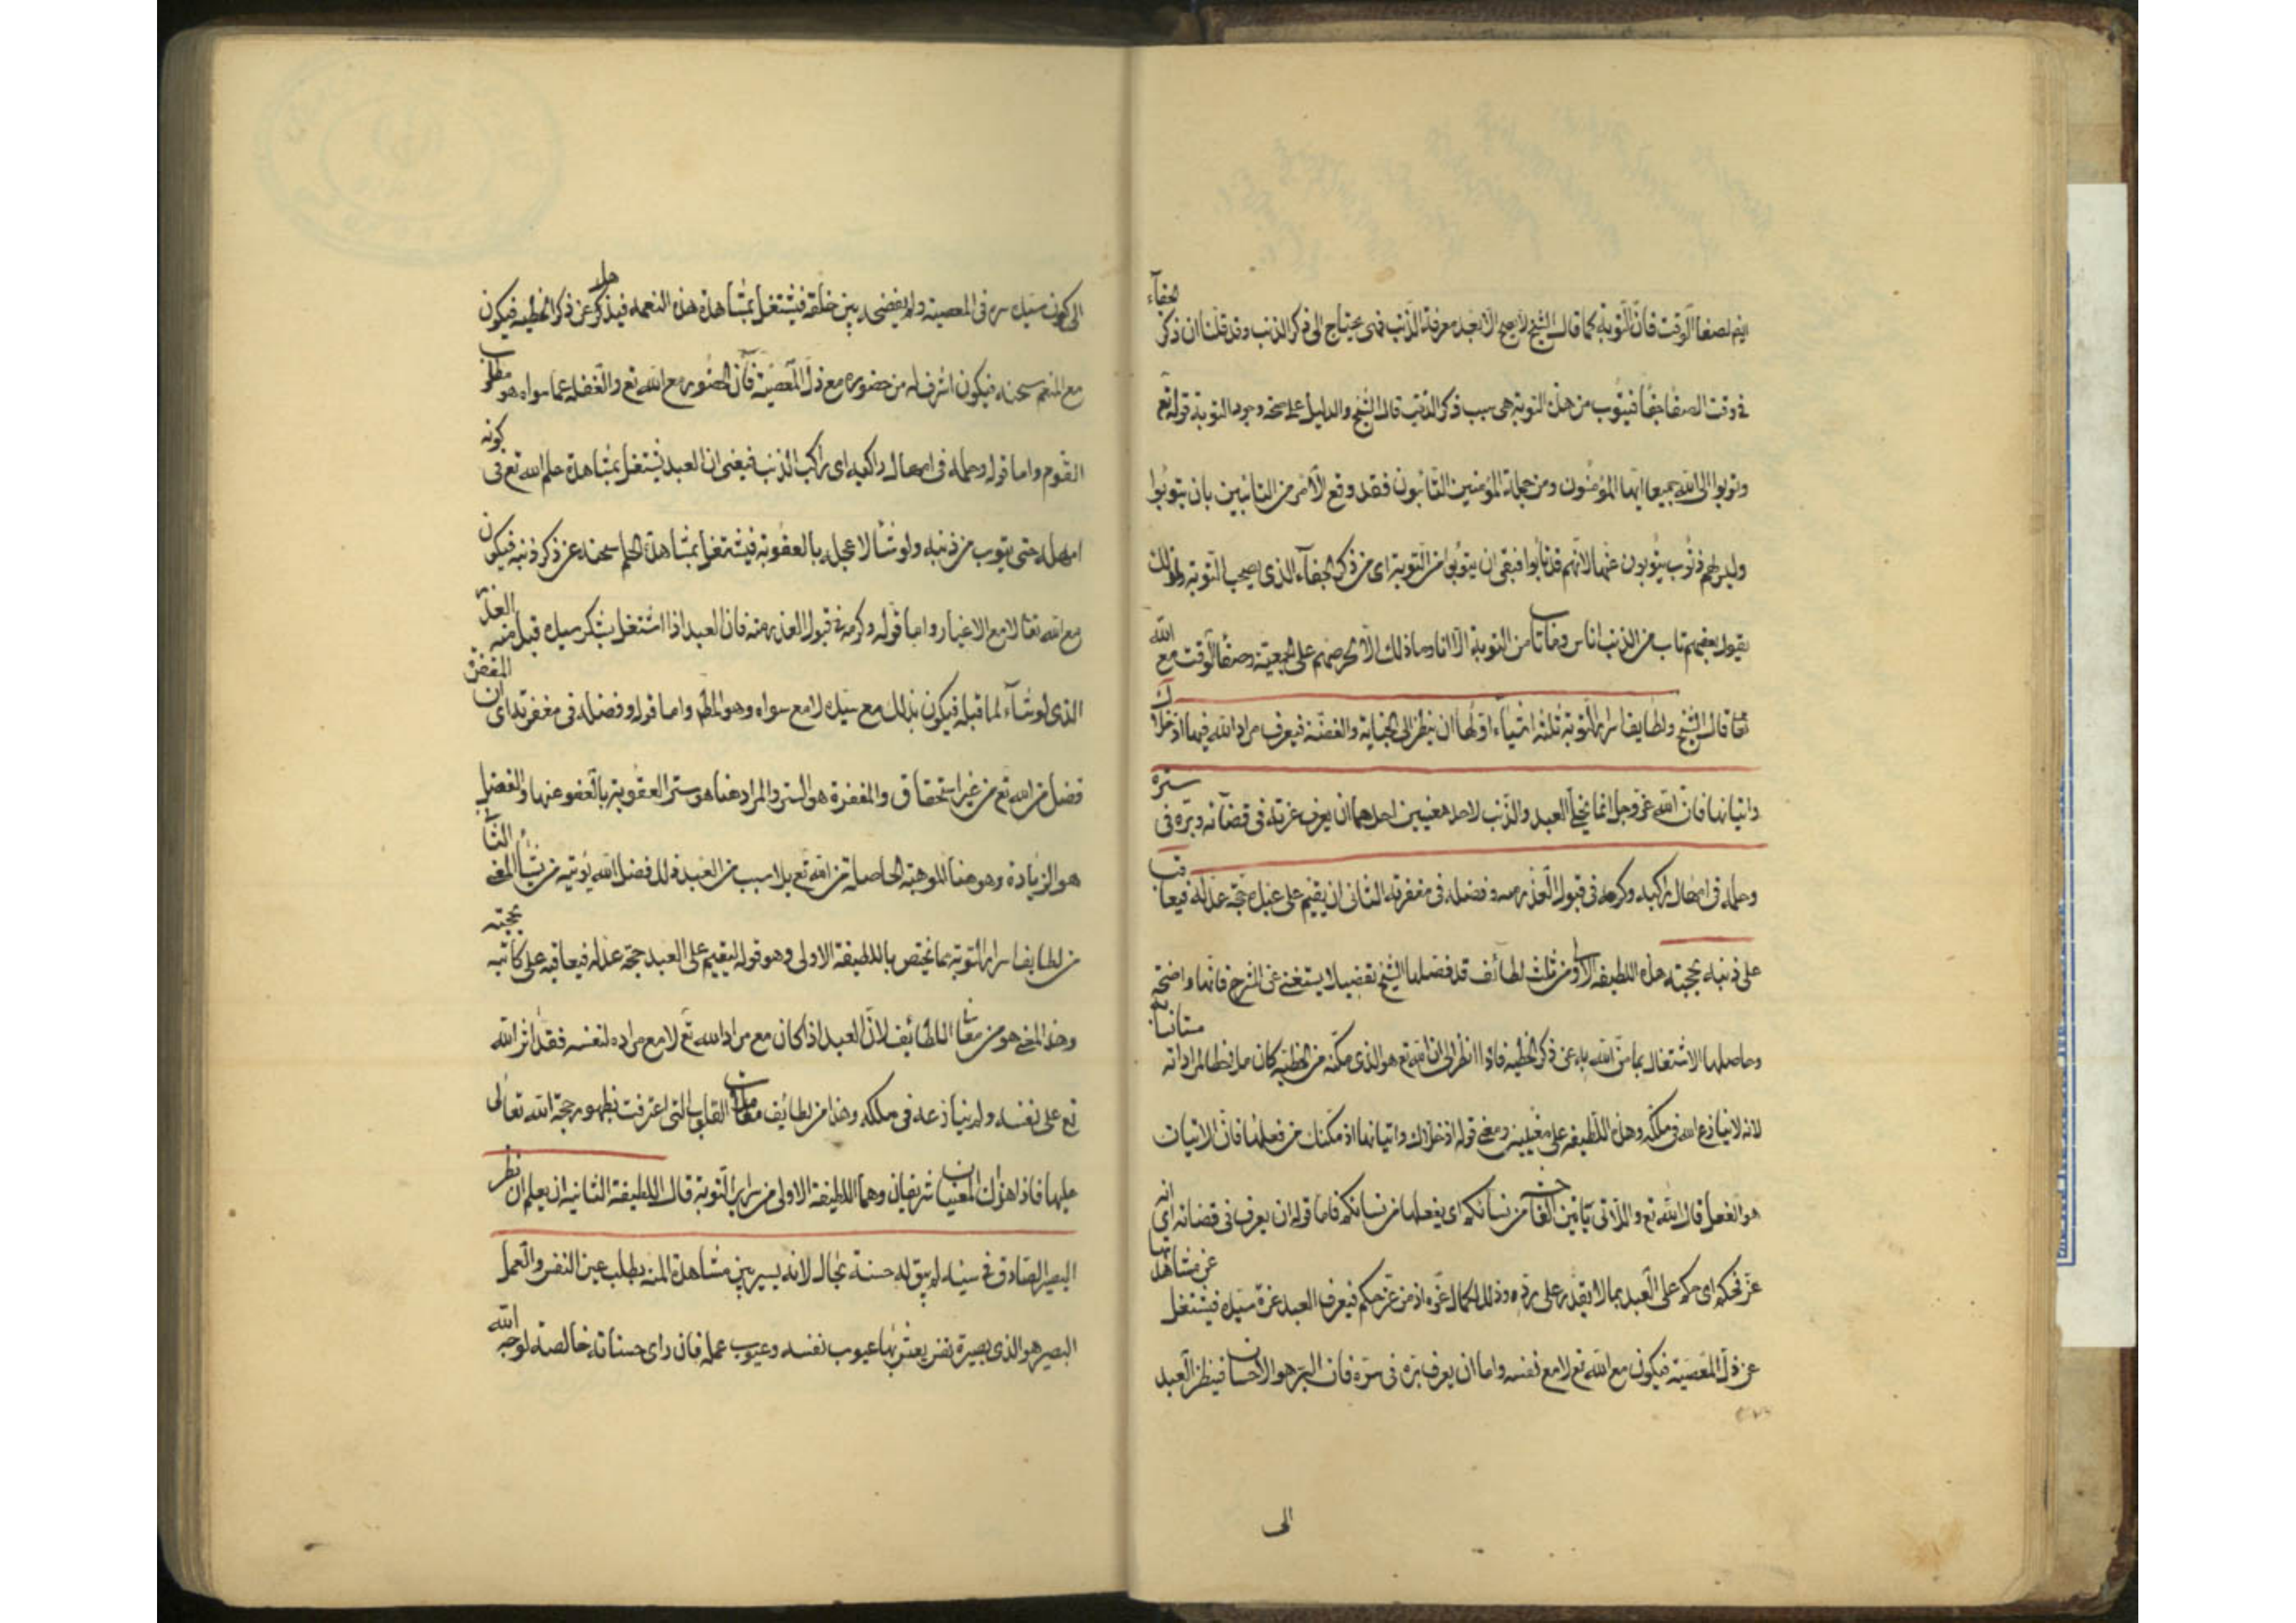 ايضا لصفاء الوقت فان التوبة كما قال الشيخ لا يصح الا بعد معرفة الذنب فهى يحتاج الى ذكر الذنب وقد قلنا ان ذكر الجفاء
فى وقت الصفا جفا فيتوب من هذه التوبة هى سبب ذكر الذنب قال الشيخ والدليل على صحة وجوه التوبة قوله تع
وتوبوا الى الله جميعا ايها المؤمنون ومن جملة المؤمنين التائبون فقد وقع الامر من التائبين بان يتوبوا
وليس لهم ذنوب يتوبون عنها لانهم قد تابوا فبقى ان يتوبوا من التوبة اى من ذكر الجفاء الذى يصحب التوبة ولذلك
يقول بعضهم تاب من الذنب اناس وما تاب من التوبة الا انا وما ذلك الا لحرصهم على الجمعية وصفا الوقت مع الله
تعا قال الشيخ ولطايف اسرار التوبة ثلثة اشياء اولها ان ينظر الى الجناية والقضية فيعرف مراد الله فيها اذ خلاك
واتيانها فان الله عز وجل انما يخلى العبد والذنب لاحد معنيين احدهما ان يعرف عزته فى قضائه وبره فى ستره
وحلمه فى امهال راكبه وكرمه فى قبول العذر منه وفضله فى مغفرته الثانى ان يقيم على عبده حجة عدله فيعاقب
على ذنبه بحجته هذه اللطيفة الاولى من ثلث لطائف قد فصلها الشيخ تفصيلا يستغنى عن الشرح فانها واضحة
وحاصلها الاشتغال بما من الله به عن ذكر الخطية فاذا انظر الى ان الله تع هو الذى مكنه من الخطية كان ملاحظا لمراداته
لانه لا ينازع الله فى ملكه وهذه اللطيفة على معنيين ومعنى قوله اذ خلاك واتيانها اذ مكنك من فعلها فان الاتيان
هو الفعل قال الله تع واللاتى ياتين الفاحشة من نسائكم اى يفعلها من نسائكم فاما قوله ان يعرف فى قضائه اى انه
عز فحكم اى حكم على العبد بما لا يقدر على رده وذلك لكمال عزه اذ من عز حكم فيعرف العبد عزة سيده فيشتغل
عن ذل المعصية فيكون مع الله تع لا مع نفسه واما ان يعرف بره فى ستره فان البر هو الاحسان فينظر العبد
الى
الى كون سيده ستره فى المعصية ولم يفضحه بين خلقه فيشتغل بمشاهدة هذه النعمة عن ذكر الخطية فيكون
مع المنعم سبحنه فيكون اشرف له من حضوره مع ذل المعصية فان الحضور مع الله تع والغفلة عما سواه هو مطلوب
القوم واما قوله وحلمه فى امهال راكبه اى راكب الذنب فيعنى ان العبد يشتغل بمشاهدة حلم الله تع فى كونه
امهله حتى يتوب من ذنبه ولو شا لاعجله بالعقوبة فيشتغل بمشاهدة الحلم سبحنه عن ذكر ذنبه فيكون
مع الله تعا لا مع الاغيار واما قوله وكرمه فى قبول العذر منه فان العبد اذا اشتغل بشكر سيده قبل منه العذر
الذى لو شاء لما قبله فيكون بذلك مع سيده لا مع سواه وهو المط واما قوله وفضله فى مغفرته اى ان المغفرة
فضل من الله تع من غير استحقاق والمغفرة هو الستر والمراد هنا هو ستر العقوبة بالعفو عنها والفضل
هو الزيادة وهو هنا الموهبة الحاصلة من الله تع بلا سبب من العبد ذلك فضل الله يؤتيه من يشا المعنى الثانى
من لطايف اسرار التوبة مما يختص باللطيفة الاولى وهو قوله ليقيم على العبد حجة عدله فيعاقبه على ذنبه بحجته
وهذا المعنى هو من معانى اللطائف لان العبد اذا كان مع مراد الله تع لا مع مراده لنفسه فقد اثر الله
تع على نفسه ولم ينازعه فى ملكه وهذا من لطائف معاملات القلوب التى اعترفت بظهور حجة الله تعالى
عليها فاذا هذان المعنيان شريفان وهما اللطيفة الاولى من سراير التوبة قال اللطيفة الثانية ان يعلم ان نظر
البصير الصادق فى سيئه لم يبق له حسنة بحال لانه يسير بين مشاهدة المنه وطلب عيب النفس والعمل
البصير هو الذى بصيرة نفس يعثر بها عيوب نفسه وعيوب عمله فان راى حسناته خالصة لوجه الله